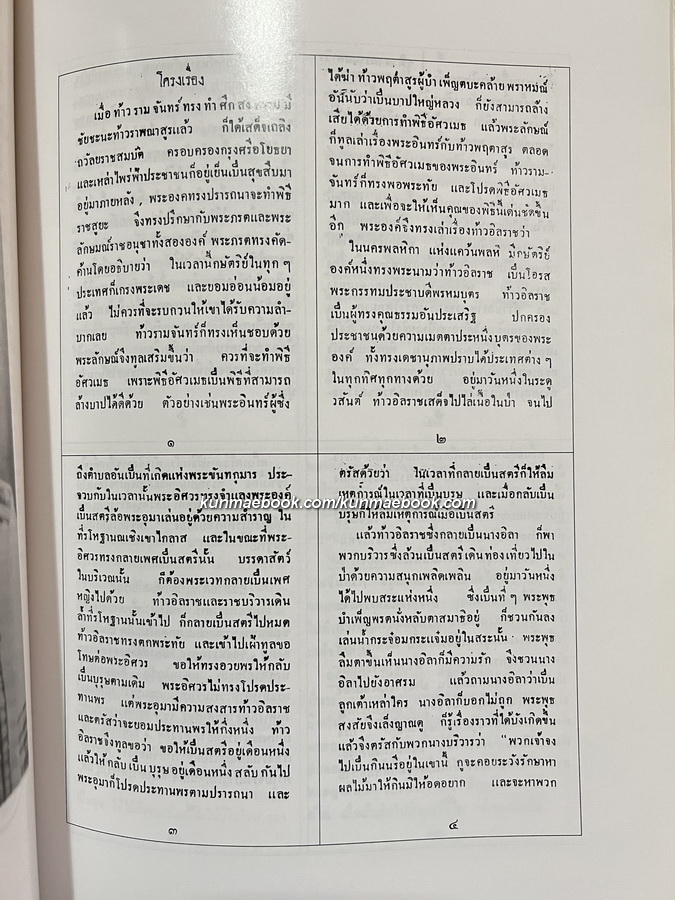 โครงเรื่อง
เมื่อ ท้าว ราม จันทร์ ทรง ทำ ศึก มี
ชัยชนะท้าวราพณาสูรแล้ว ก็ได้เสด็จเถลิง
ถวัลยราชสมบัติ ครอบครองกรุงศรีอโยธยา
และเหล่าไพร่ฟ้าประชาชนก็อยู่เย็นเป็นสุขสืบมา
อยู่มาภายหลัง, พระองคทรงปรารถนาจะทำพิธี
ราชสูยะ จึงทรงปรึกษากับพระภรตและพระ
ลักษมณ์ราชอนุชาทั้งสององค์ พระภรตทรงคัด-
ค้านโดยอธิบายว่า ในเวลานี้กษัตริย์ในทุก ๆ
ประเทศก็เกรงพระเดช และยอมอ่อนน้อมอยู่
แล้ว ไม่ควรที่จะรบกวนให้เขาได้รับความลำ-
บากเลย ท้าวรามจันทร์ก็ทรงเห็นชอบด้วย
พระลักษณ์จึงทูลเสริมขึ้นว่า ควรที่จะทำพิธี
อัศวเมธ เพราะพิธีอัศวเมธเป็นพิธีที่สามารถ
ล้างบาปได้ดีด้วย ตัวอย่างเช่นพระอินทร์ผู้ซึ่ง
๑
ได้ฆ่า ท้าวพฤตาสูรผู้บำเพ็ญตบะคล้าย พราหมณ์
อันนับว่าเป็นบาปใหญ่หลวง ก็ยังสามารถล้าง
เสียได้ด้วยการทำพิธีอัศวเมธ แล้วพระลักษณ์
ก็ทูลเล่าเรื่องพระอินทร์กับท้าวพฤตาสุร ตลอด
จนการทำพิธีอัศวเมธของพระอินทร์ ท้าวราม-
จันทร์ก็ทรงพอพระทัย และโปรดพิธีอัศวเมธ
มาก และเพื่อจะให้เห็นคุณของพิธีนี้เด่นชัดขึ้น
อีก พระองค์จึงทรงเล่าเรื่องท้าวอิลราชว่า
ในนครพลหิกา แห่งแคว้นพลหิ มีกษัตริย์
องค์หนึ่งทรงพระนามว่าท้าวอิลราช เป็นโอรส
พระกรรทมประชาบดีพรหมบุตร ท้าวอิลราช
เป็นผู้ทรงคุณธรรมอันประเสริฐ ปกครอง
ประชาชนด้วยความเมตตาประหนึ่งบุตรของพระ
องค์ ทั้งทรงเดชานุภาพปราบได้ประเทศต่าง ๆ
ในทุกทิศทุกทางด้วย อยู่มาวันหนึ่งในระดู
วสันต์ ท้าวอิลราชเสด็จไปไล่เนื้อในป่า จนไป
๒
ถึงตำบลอันเป็นที่เกิดแห่งพระขันทกุมาร ประ-
จวบกับในเวลานั้นพระอิศวรทรงจำแลงพระองค์
เป็นสตรีล้อพระอุมาเล่นอยู่ด้วยความสำราญ ใน
ที่รโหฐานณเชิงเขาไกลาส และในขณะที่พระ-
อิศวรทรงกลายเพศเป็นสตรีนั้น บรรดาสัตว์
ในบริเวณนั้น ก็ต้องพระเวทกลายเป็นเพศ
หญิงไปด้วย ท้าวอิลราชและราชบริวารเดิน
ล้ำที่รโหฐานนั้นเข้าไป ก็กลายเป็นสตรีไปหมด
ท้าวอิลราชทรงตกพระทัย และเข้าไปเฝ้าทูลขอ
โทษต่อพระอิศวร ขอให้ทรงอวยพรให้กลับ
เป็นบุรุษตามเดิม พระอิศวรไม่ทรงโปรดประ-
ทานพร แต่พระอุมามีความสงสารท้าวอิลราช
และตรัสว่าจะยอมประทานพรให้กึ่งหนึ่ง ท้าว
อิลราชจึงทูลขอว่า ขอให้เป็นสตรีอยู่เดือนหนึ่ง
แล้วให้ กลับ เป็น บุรุษ อยู่เดือนหนึ่ง สลับ กันไป
พระอุมาก็โปรดประทานพรตามปรารถนา และ
๓
ตรัสด้วยว่า ในเวลาที่กลายเป็นสตรีก็ให้ลืม
เหตุการ์ณในเวลาที่เป็นบุรุษ และเมื่อกลับเป็น
บุรุษก็ให้ลืมเหตุการณ์เมื่อเป็นสตรี
แล้วท้าวอิลราชซึ่งกลายเป็นนางอิลา ก็พา
พวกบริวารซึ่งล้วนเป็นสตรี เดินท่องเที่ยวไปใน
ป่าด้วยความสนุกเพลิดเพลิน อยู่มาวันหนึ่ง
ได้ไปพบสระแห่งหนึ่ง ซึ่งเป็นที่ ๆ พระพุธ
บำเพ็ญพรตนั่งหลับตาสมาธิอยู่ ก็ชวนกันลง
เล่นน้ำกระจ๋อมกระแจ๋มอยู่ในสระนั้น พระพุธ
ลืมตาขึ้นเห็นนางอิลาก็มีความรัก จึงชวนนาง
อิลาไปยังอาศรม แล้วถามนางอิลาว่าเป็น
ลูกเต้าเหล่าใคร นางอิลาก็บอกไม่ถูก พระพุธ
สงสัยจึงเล็งญาณดู ก็รู้เรื่องราวที่ได้บังเกิดขึ้น
แล้วจึงตรัสกับพวกนางบริวารว่า "พวกเจ้าจง
ไปเป็นกินนรีอยู่ในเขานี้ กูจะคอยระวังรักษาหา
ผลไม้มาให้กินมิให้อดอยาก และจะหาพวก
๔
kunmaebook.com/kunmaebook.com